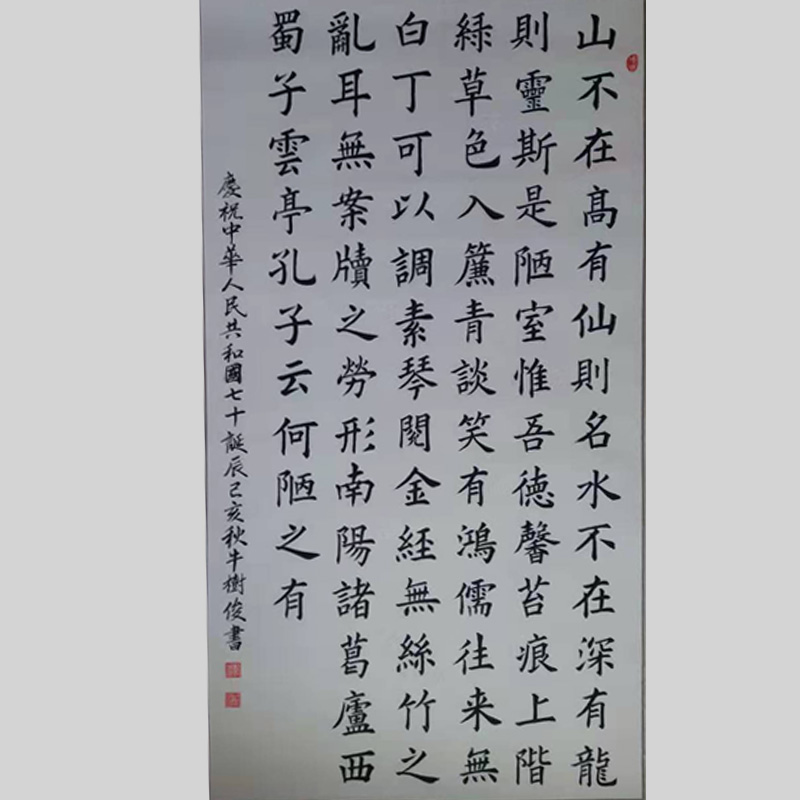 山不在高有仙則名水不在深有龍
則靈斯是陋室惟吾德馨苔痕上階
緑草色入簾青談笑有鴻儒往来無
白丁可以調素琴閲金経無絲竹之
亂耳無案牘之勞形南陽諸葛廬西
蜀子雲亭孔子云何陋之有
慶祝中華人民共和國七十誕辰己亥秋牛樹俊書